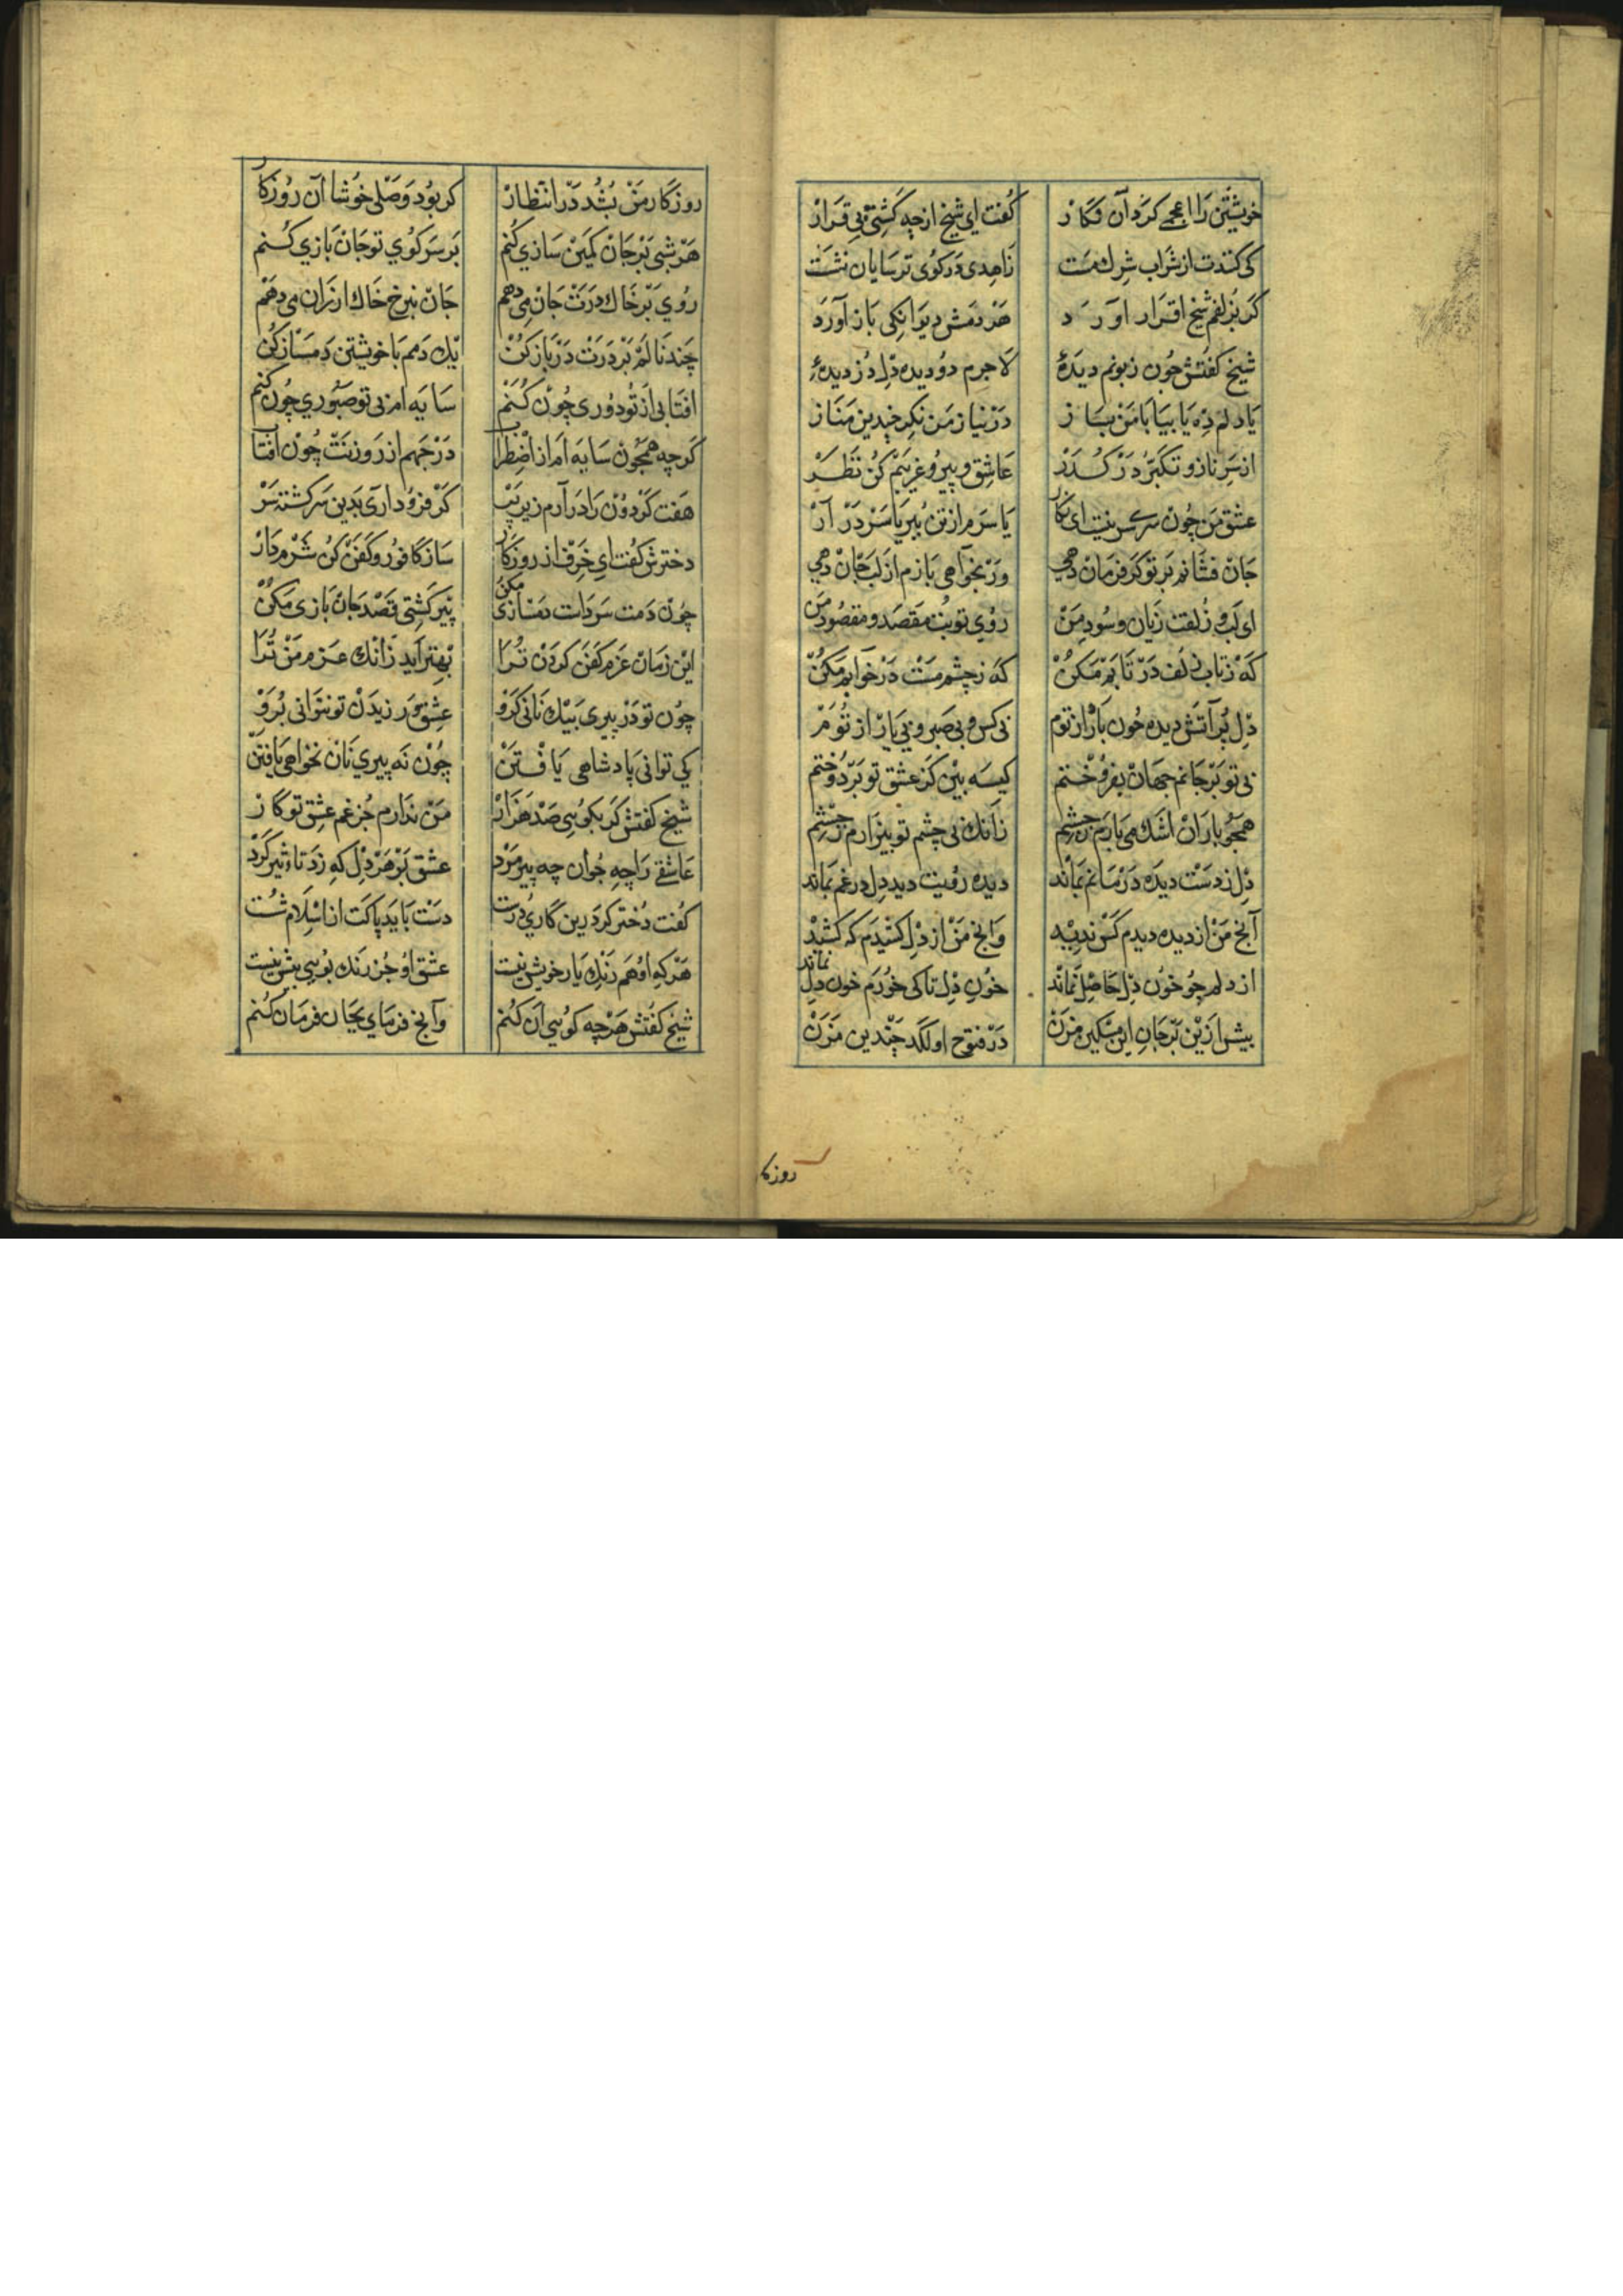 خويشتن را اعجمى كرد آن نكار كفت اى شيخ از چه كشتى بى قرار
كى كنندت از شراب شرك مست زاهدى در كوى ترسايان نشست
كر بزلفم شيخ اقرار آورد هر دمش ديوانكى باز آورد
شيخ كفتش چون زبونم ديدۀ لاجرم دزديده دل دزديدۀ
يا دلم ده يا بيا با من بساز در نياز من نكر چندين مناز
از سر ناز و تكبر در كذر عاشق و پير و غريبم كن نظر
عشق من چون سرسرى نيست اى نكار يا سرم از تن ببر يا سر در آر
جان فشانم بر تو كر فرمان دهى ور بخواهى بازم از لب جان دهى
اى لب و زلفت زيان و سود من روى تو بت مقصد و مقصود من
كه ز تاب زلف در تابم مكن كه ز چشم مست در خوابم مكن
دل پر آتش ديده چون باران از توم بى كس و بى صبر و بى يار از توم
بى تو بر جانم جهان بفروختم كيسه بين كز عشق تو بردوختم
همچو باران اشك مى بارم ز چشم زانك بى چشم تو بيزارم ز چشم
دل ز دست ديده در ماتم بماند ديده رويت ديد دل در غم بماند
آنچ من از ديده ديدم كس نديد وانچ من از دل كشيدم كه كشيد
از دلم جز خون دل حاصل نماند خون دل تا كى خورم خون دل نماند
بيش ازين بر جان اين مسكين مزن در فتوح او لكد چندين مزن
روزكا
روزكار من بشد در انتظار كر بود وصلى خوشا آن روزكار
هر شبى بر جان كمين سازى كنم بر سر كوى تو جان بازى كنم
روى بر خاك درت جان مى دهم جان بنرخ خاك ارزان مى دهم
چند نالم بر درت در باز كن يك دمم با خويشتن دمساز كن
افتابى از تو دورى چون كنم سايه ام بى تو صبورى چون كنم
كرچه همچون سايه ام از اضطراب در جهم از روزنت چون افتاب
هفت كردون را در آرم زير پر كر فرو دارى بدين سركشته سر
دخترش كفت اى خرف از روزكار ساز كافور و كفن كن شرم دار
چون دمت سردست دمسازى مكن پير كشتى قصد جان بازى مكن
اين زمان عزم كفن كردن ترا بهتر آيد زانك عزم من ترا
چون تو در پيرى بيك نانى كرو عشق ورزيدن تو نتوانى برو
كى توانى پادشاهى يافتن چون نه پيرى نان نخواهى يافتن
شيخ كفتش كر بكويى صد هزار من ندارم جز غم عشق تو كار
عاشقى را چه جوان چه پير مرد عشق بر هر دل كه زد تاءثير كرد
كفت دختر كر درين كارى درست دست بايد پاكت از اسلام شست
هر كه او هم رنك يار خويش نيست عشق او جز رنك بويى بيش نيست
شيخ كفتش هرچه كويى آن كنم وآنچ فرماى بجان فرمان كنم